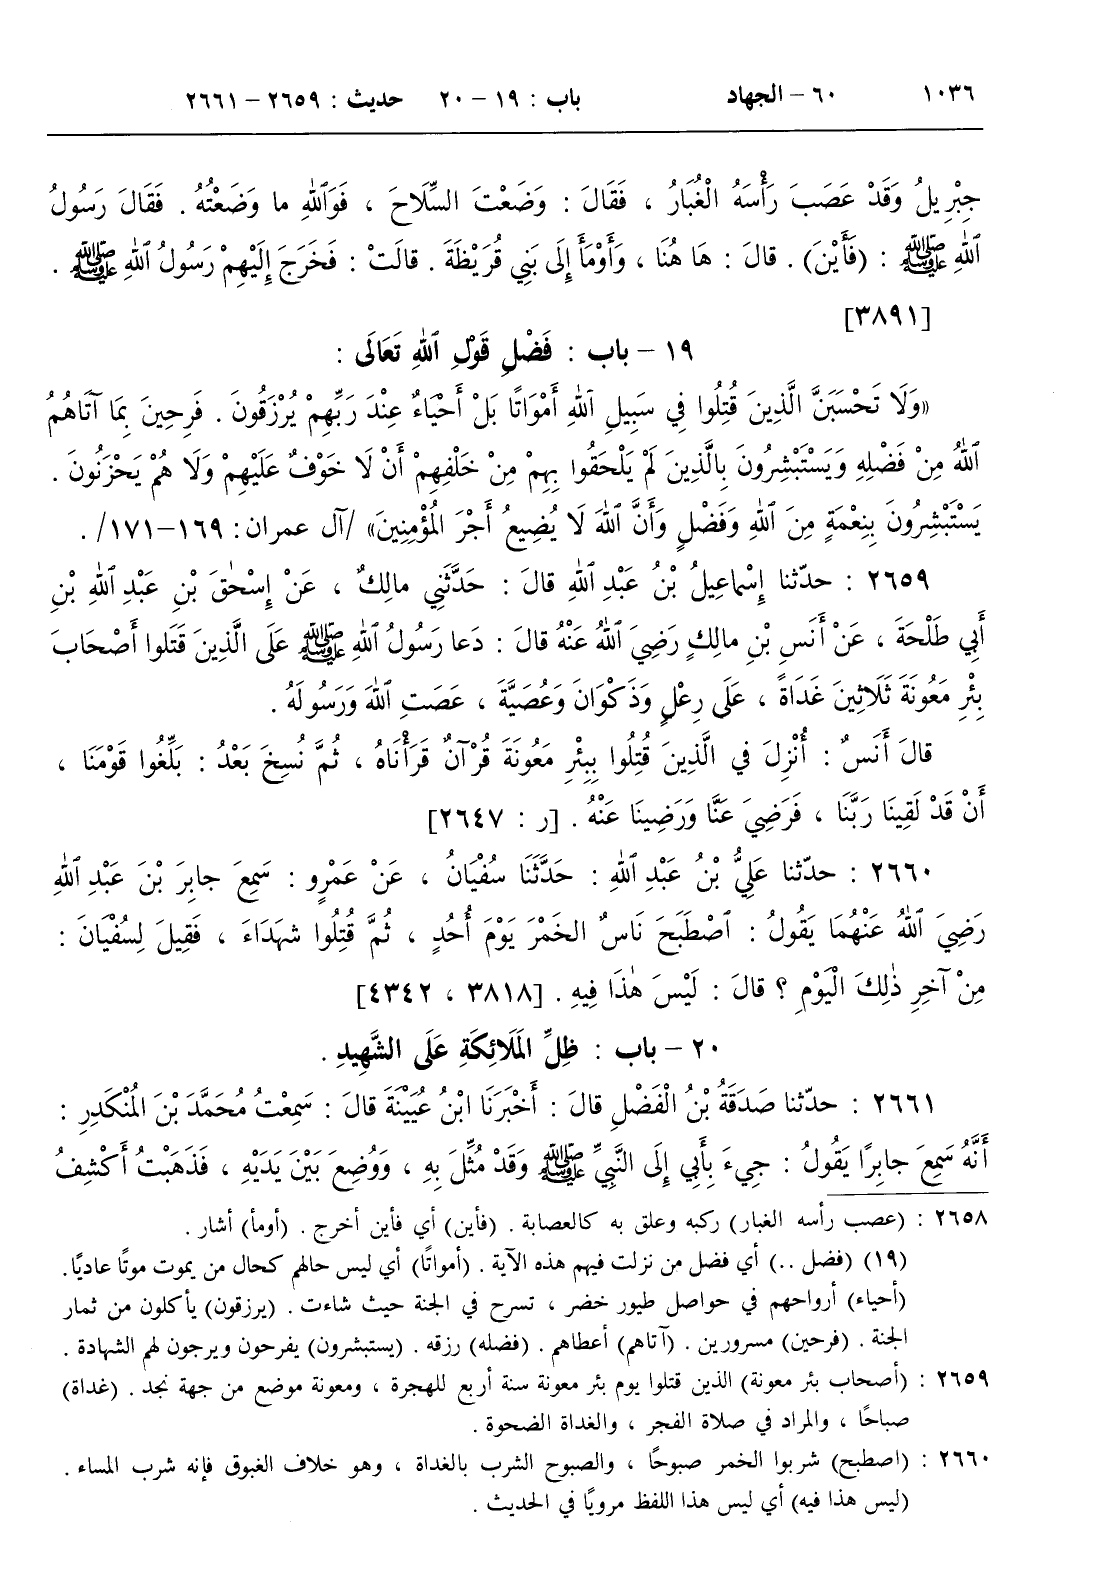 ١٠٣٦ ٦٠ – الجهاد باب : ١٩ – ٢٠ حديث : ٢٦٥٩ – ٢٦٦١
جِبْرِيلُ وَقَدْ عَصَبَ رَأْسَهُ الْغُبَارُ ، فَقَالَ : وَضَعْتَ السِّلَاحَ ، فَوَاللهِ ما وَضَعْتُهُ . فَقَالَ رَسُولُ
اللهِ ﷺ : (فَأَيْنَ) . قالَ : هَا هُنَا ، وَأَوْمَأَ إِلَى بَنِي قُرَيْظَةَ . قالَتْ : فَخَرَجَ إِلَيْهِمْ رَسُولُ اللهِ ﷺ .
[٣٨٩١]
١٩ – باب : فَضْلِ قَوْلِ اللهِ تَعَالَى :
«وَلَا تَحْسَبَنَّ الَّذِينَ قُتِلُوا فِي سَبِيلِ اللهِ أَمْوَاتًا بَلْ أَحْيَاءٌ عِنْدَ رَبِّهِمْ يُرْزَقُونَ . فَرِحِينَ بِمَا آتَاهُمُ
اللهُ مِنْ فَضْلِهِ وَيَسْتَبْشِرُونَ بِالَّذِينَ لَمْ يَلْحَقُوا بِهِمْ مِنْ خَلْفِهِمْ أَنْ لَا خَوْفٌ عَلَيْهِمْ وَلَا هُمْ يَحْزَنُونَ .
يَسْتَبْشِرُونَ بِنِعْمَةٍ مِنَ اللهِ وَفَضْلٍ وَأَنَّ اللهَ لَا يُضِيعُ أَجْرَ الْمُؤْمِنِينَ» /آل عمران : ١٦٩–١٧١/ .
٢٦٥٩ : حدّثنا إِسْماعِيلُ بْنُ عَبْدِ اللهِ قالَ : حَدَّثَنِي مالِكٌ ، عَنْ إِسْحٰقَ بْنِ عَبْدِ اللهِ بْنِ
أَبِي طَلْحَةَ ، عَنْ أَنَسِ بْنِ مالِكٍ رَضِيَ اللهُ عَنْهُ قالَ : دَعا رَسُولُ اللهِ ﷺ عَلَى الَّذِينَ قَتَلُوا أَصْحَابَ
بِئْرِ مَعُونَةَ ثَلَاثِينَ غَدَاةً ، عَلَى رِعْلٍ وَذَكْوَانَ وَعُصَيَّةَ ، عَصَتِ اللهَ وَرَسُولَهُ .
قالَ أَنَسٌ : أُنْزِلَ فِي الَّذِينَ قُتِلُوا بِبِئْرِ مَعُونَةَ قُرْآنٌ قَرَأْنَاهُ ، ثُمَّ نُسِخَ بَعْدُ : بَلِّغُوا قَوْمَنَا ،
أَنْ قَدْ لَقِينَا رَبَّنَا ، فَرَضِيَ عَنَّا وَرَضِينَا عَنْهُ . [ر : ٢٦٤٧]
٢٦٦٠ : حدّثنا عَلِيُّ بْنُ عَبْدِ اللهِ : حَدَّثَنَا سُفْيَانُ ، عَنْ عَمْرٍو : سَمِعَ جابِرَ بْنَ عَبْدِ اللهِ
رَضِيَ اللهُ عَنْهُمَا يَقُولُ : اصْطَبَحَ نَاسٌ الخَمْرَ يَوْمَ أُحُدٍ ، ثُمَّ قُتِلُوا شهَدَاءَ ، فَقِيلَ لِسُفْيَانَ :
مِنْ آخِرِ ذٰلِكَ الْيَوْمِ ؟ قالَ : لَيْسَ هٰذَا فِيهِ . [٣٨١٨ ، ٤٣٤٢]
٢٠ – باب : ظِلِّ الْمَلَائِكَةِ عَلَى الشَّهِيدِ .
٢٦٦١ : حدّثنا صَدَقَةُ بْنُ الْفَضْلِ قالَ : أَخْبَرَنَا ابْنُ عُيَيْنَةَ قالَ : سَمِعْتُ مُحَمَّدَ بْنَ الْمُنْكَدِرِ :
أَنَّهُ سَمِعَ جابِرًا يَقُولُ : جِيءَ بِأَبِي إِلَى النَّبِيِّ ﷺ وَقَدْ مُثِّلَ بِهِ ، وَوُضِعَ بَيْنَ يَدَيْهِ ، فَذَهَبْتُ أَكْشِفُ
٢٦٥٨ : (عصب رأسه الغبار) ركبه وعلق به كالعصابة . (فأين) أي فأين أخرج . (أومأ) أشار .
(١٩) (فضل ..) أي فضل من نزلت فيهم هذه الآية . (أمواتًا) أي ليس حالهم كحال من يموت موتًا عاديًا .
(أحياء) أرواحهم في حواصل طيور خضر ، تسرح في الجنة حيث شاءت . (يرزقون) يأكلون من ثمار
الجنة . (فرحين) مسرورين . (آتاهم) أعطاهم . (فضله) رزقه . (يستبشرون) يفرحون ويرجون لهم الشهادة .
٢٦٥٩ : (أصحاب بئر معونة) الذين قتلوا يوم بئر معونة سنة أربع للهجرة ، ومعونة موضع من جهة نجد . (غداة)
صباحًا ، والمراد في صلاة الفجر ، والغداة الضحوة .
٢٦٦٠ : (اصطبح) شربوا الخمر صبوحًا ، والصبوح الشرب بالغداة ، وهو خلاف الغبوق فإنه شرب المساء .
(ليس هذا فيه) أي ليس هذا اللفظ مرويًا في الحديث .